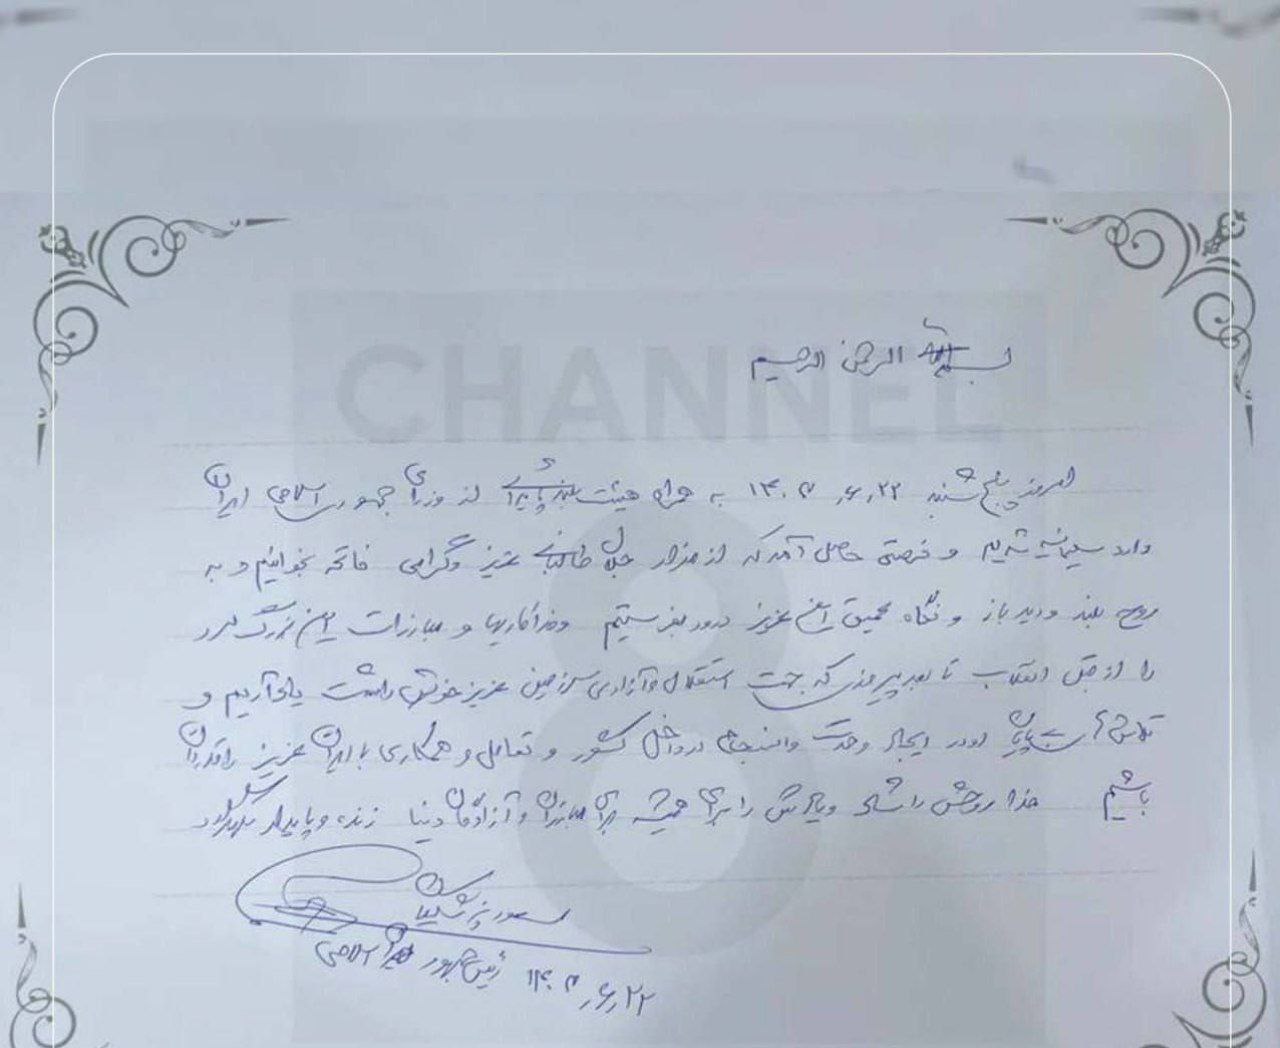 بسم الله الرحمن الرحیم
CHANNEL
8
امروز پنج شنبه ۱۴۰۳,۶,۲۲ به همراه هیئت بلند پایه‌ای از وزرای جمهوری اسلامی ایران
وارد سلیمانیه شدیم و فرصتی حاصل آمد که از مزار جلال طالبانی عزیز و گرامی فاتحه بخوانیم و به
روح بلند و دید باز و نگاه عمیق این عزیز درود بفرستیم و فداکاریها و مبارزات این بزرگ مرد
را از قبل انقلاب تا بعد پیروزی که جهت استقلال و آزادی سرزمین عزیز خویش داشت یاد آریم و
تلاش بی پایان او در ایجاد وحدت و انسجام در داخل کشور و تعامل و همکاری با ایران عزیز را قدردان
باشیم خدا روحش را شاد و یادش را برای همیشه برای مبارزان و آزادگان دنیا زنده و پایدار بگرداند
مسعود پزشکیان
رئیس جمهور ایران اسلامی
۱۴۰۳,۶,۲۲